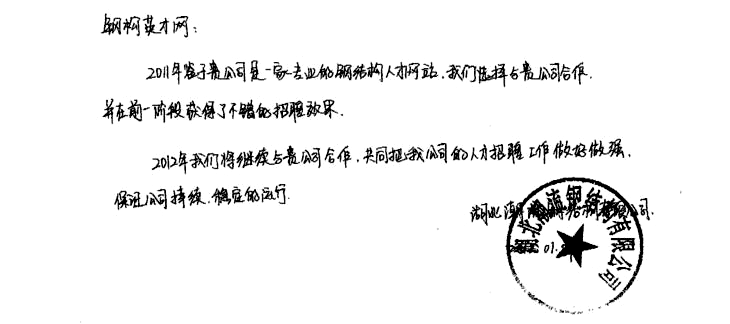 钢构英才网:
2011年鉴于贵公司是一家专业的钢结构人才网站,我们选择与贵公司合作,
并在前一阶段获得了不错的招聘效果.
2012年我们将继续与贵公司合作,共同把我公司的人才招聘工作做好做强,
保证公司持续、稳定的运行.
湖北 公司.
01.
北 钢结构有限公司